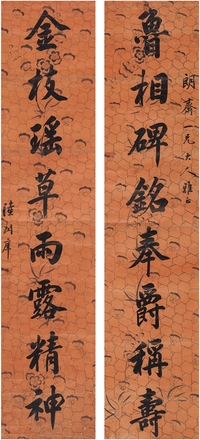 朗齋一兄大人雅正
魯相碑銘奉爵稱壽
金枝瑶草雨露精神